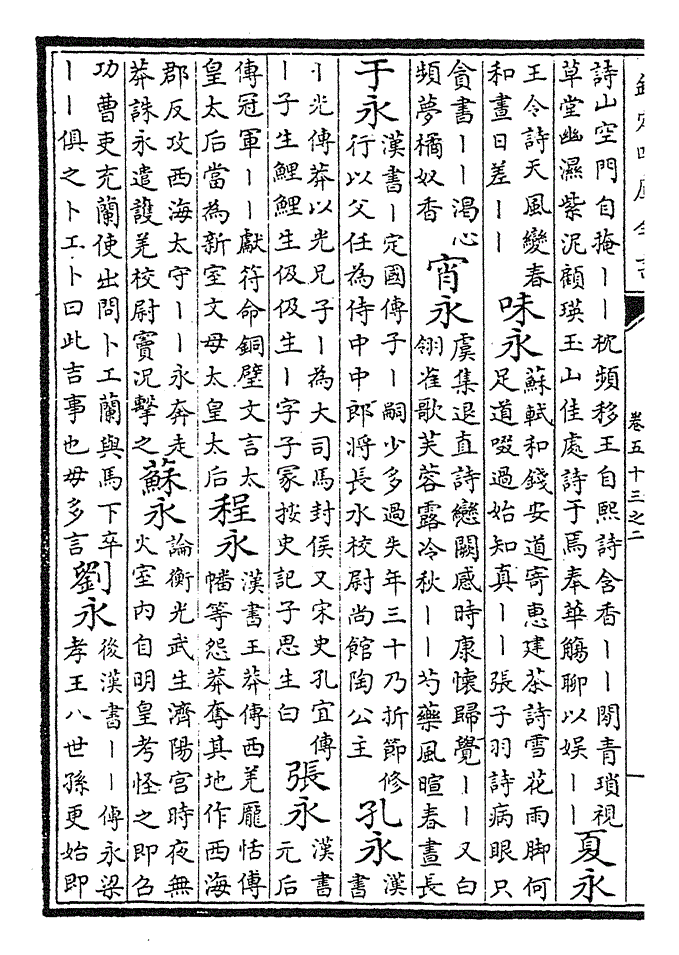 卷五十三之二
詩山空門自掩丨丨枕頻移王自熙詩含香丨丨閉青瑣視
草堂幽濕紫泥顧瑛玉山佳處詩于焉奉華觴聊以娛丨丨
夏永
王令詩天風變春
和晝日差丨丨
味永
蘇軾和錢安道寄惠建茶詩雪花雨脚何
足道啜過始知真丨丨張子羽詩病眼只
貪書丨丨渴心
頻夢橘奴香
宵永
虞集退直詩戀闕感時康懷歸覺丨丨又白
翎雀歌芙蓉露冷秋丨丨芍藥風暄春晝長
于永
漢書丨定國傳子丨嗣少多過失年三十乃折節修
行以父任為侍中中郎將長水校尉尚館陶公主
孔永
漢
書
丨光傳莽以光兄子丨為大司馬封侯又宋史孔宜傳
丨子生鯉鯉生伋伋生丨字子冡按史記子思生白
張永
漢書
元后
傳冠軍丨丨獻符命銅璧文言太
皇太后當為新室文母太皇太后
程永
漢書王莽傳西羌龐恬傅
幡等怨莽奪其地作西海
郡反攻西海太守丨丨永奔走
莽誅永遣護羌校尉竇况擊之
蘇永
論衡光武生濟陽宫時夜無
火室内自明皇考怪之即召
功曹吏充蘭使出問卜工蘭與馬下卒
丨丨俱之卜工卜曰此吉事也毋多言
劉永
後漢書丨丨傳永梁
孝王八世孫更始即